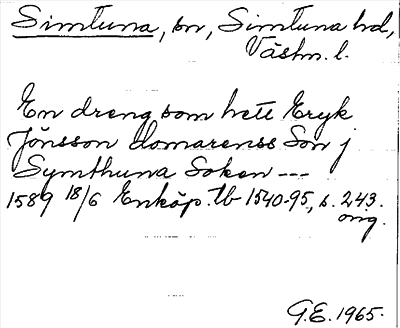 Simtuna, sn, Simtuna hd,
Västm. l.
En dreng som hett Eryk
Jönsson domarenss Son j
Symthuna Soken ---
1589 18/6 Enköp. tb 1540-95, s. 243.
orig.
G.E. 1965.